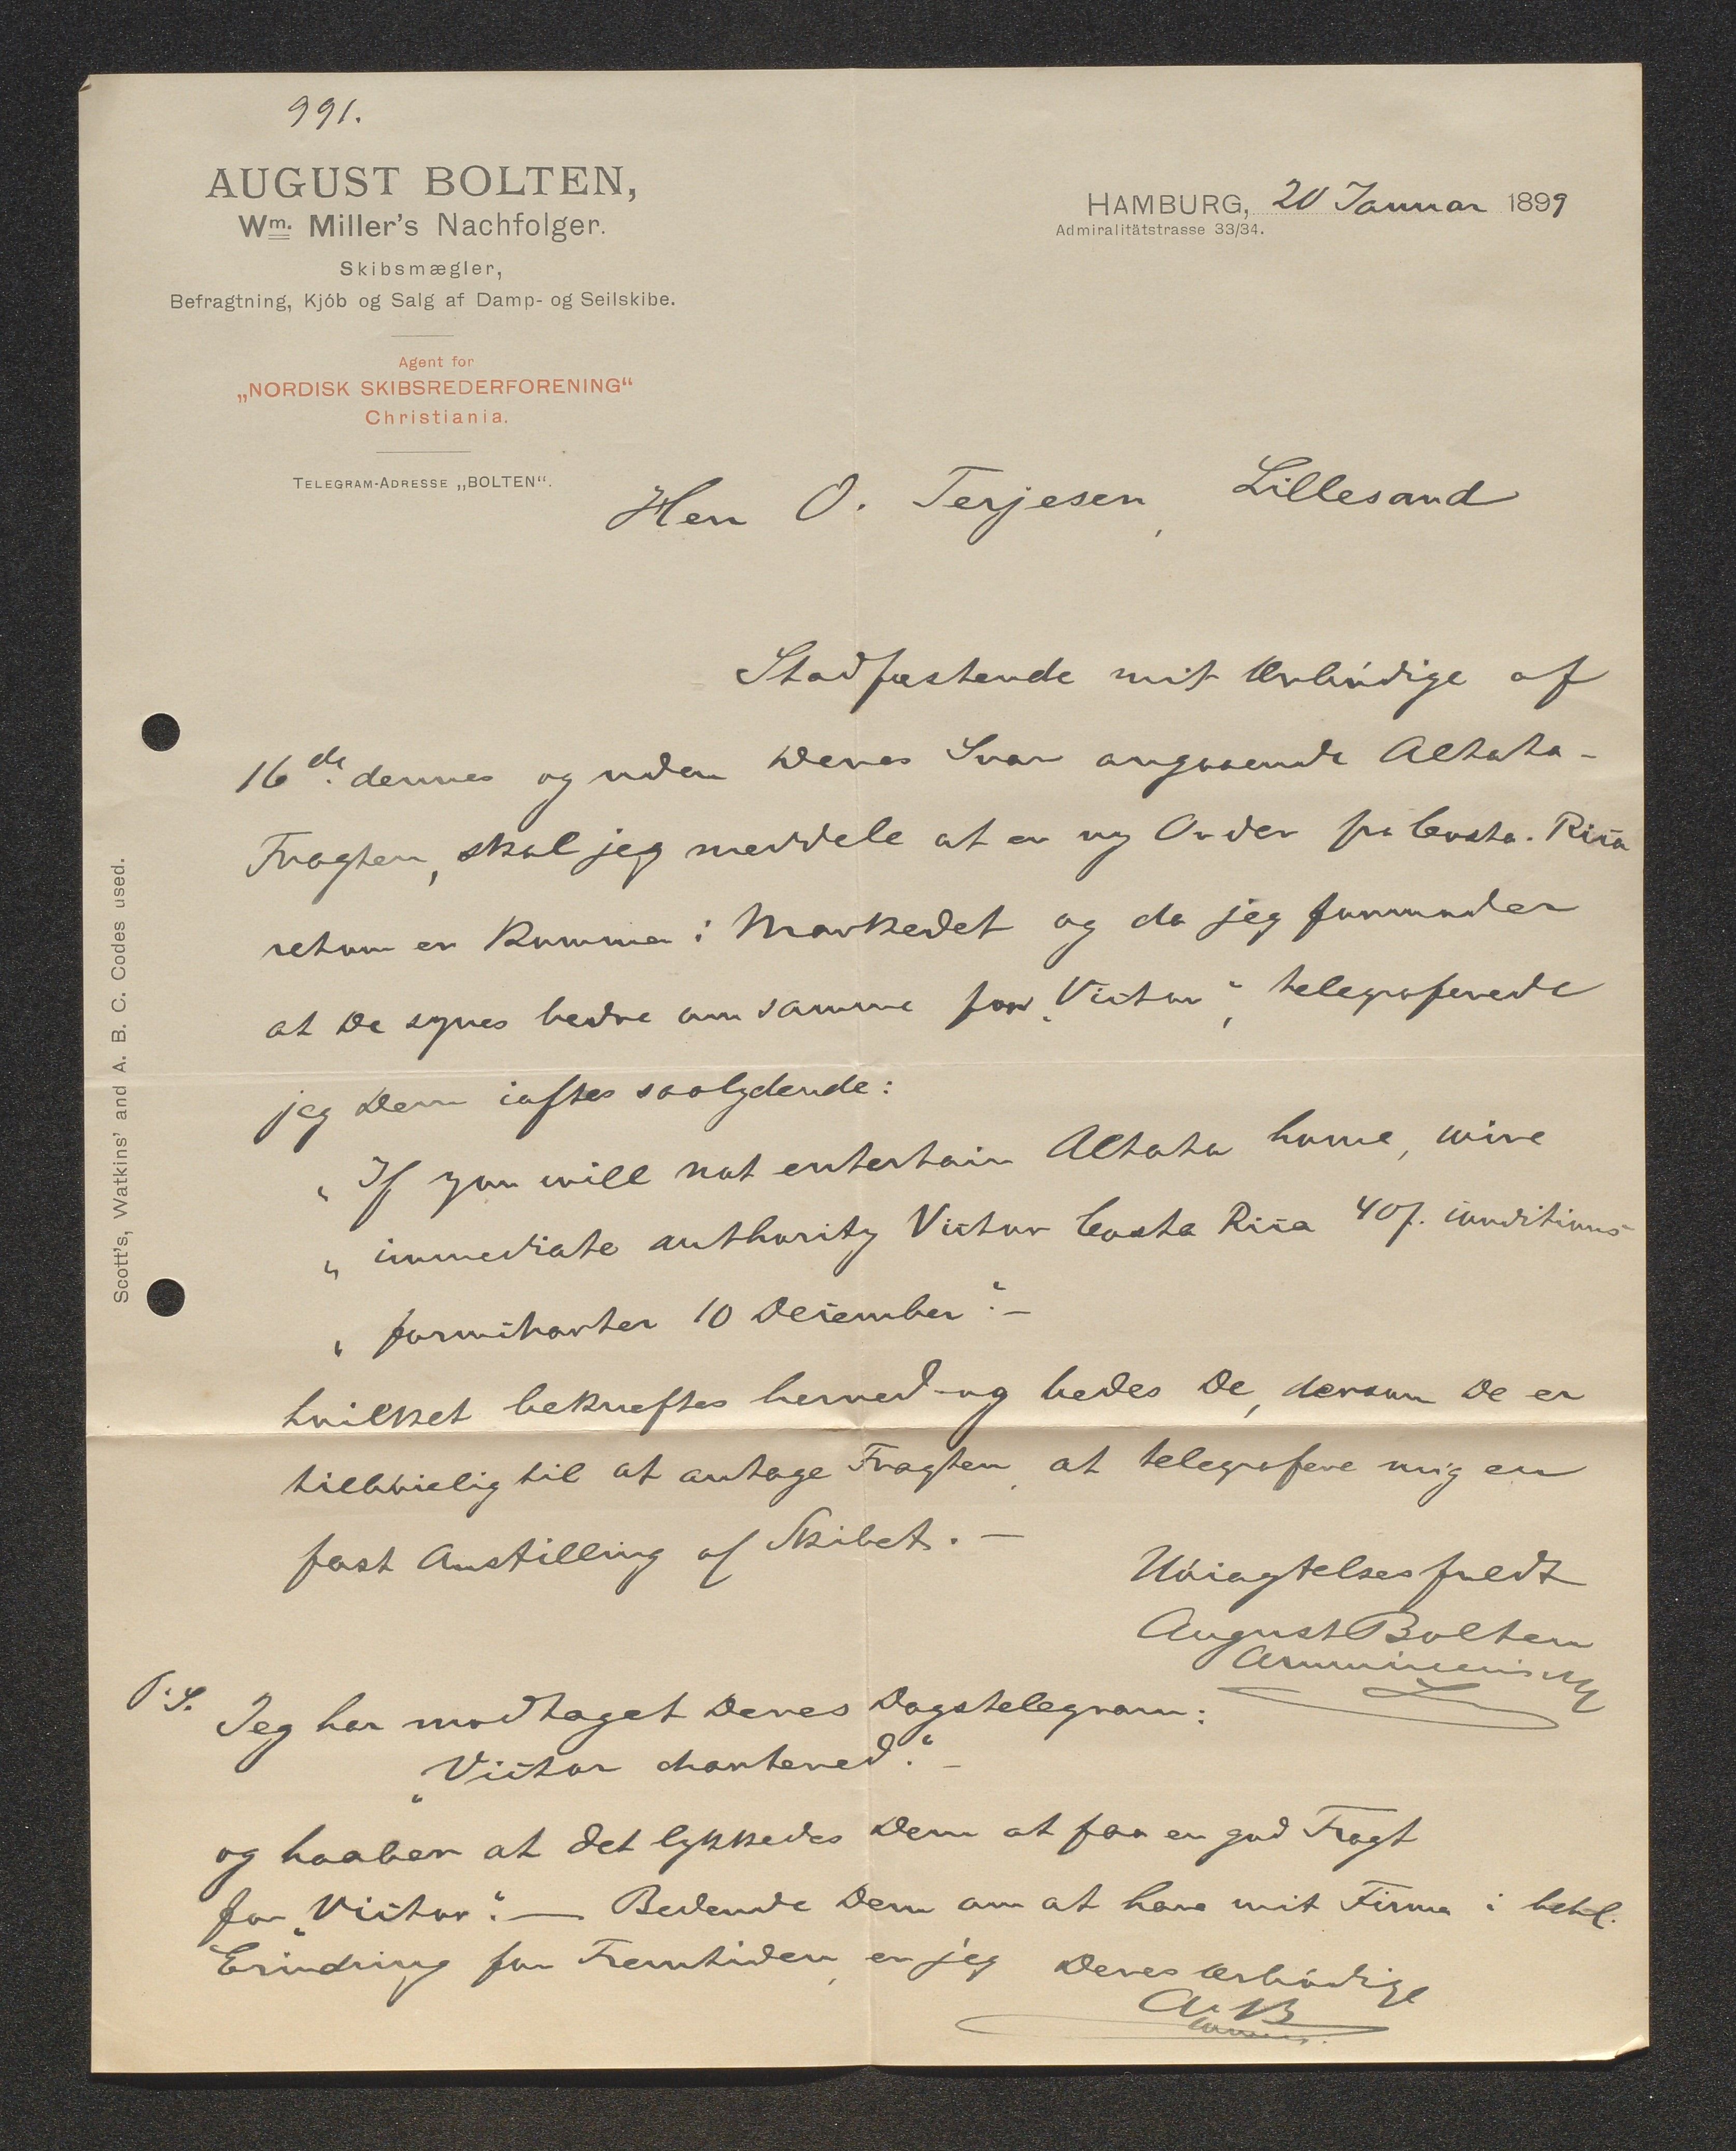 991.
AUGUST BOLTEN,
Wm. Miller's Nachfolger.
Skibsmægler,
Befragtning, Kjób og Salg af Damp- og Seilskibe.
Agent for
„NORDISK SKIBSREDERFORENING“
Christiania.
TELEGRAM-ADRESSE „BOLTEN“.
HAMBURG, 20 Januar 1899
Admiralitätstrasse 33/34.
Herr O. Terjesen, Lillesand
Stadfæstende mit Ærbódige af
16de. dennes og uden Deres Svar angaaende Altata-
Fragten, skal jeg meddele at en ny Order fra Costa. Rica
retour er kommen i Markedet og da jeg formoder
at De synes bedre om samme for „Victor“, telegraferede
jeg Dem iaftes saalydende:
„ If you will not entertain Altata home, wire
„ immediate authority Victor Costa Rica 40/. conditions
„ formcharter 10 December“. —
hvilket bekræftes herved og bedes De, dersom De er
tilbøielig til at antage Fragten, at telegrafere mig en
fast Anstilling af Skibet. —
Hóiagtelsesfuldt
August Bolten
P.S. Jeg har modtaget Deres Dagstelegram:
„Victor chartered“. —
og haaber at det lykkedes Dem at faa en god Fragt
for „Victor“. — Bedende Dem om at have mit Firma i behl.
Erindring for Fremtiden, er jeg Deres ærbódige
A. B
Scott's, Watkins' and A. B. C. Codes used.